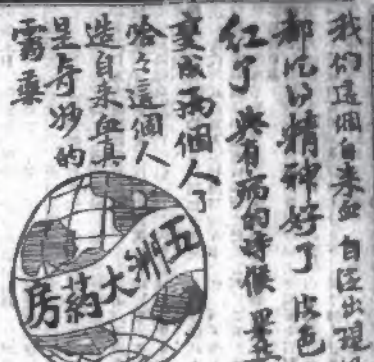 我们這個自来血自從出現
都吃的精神好了皮色
红了與有病的時候
變成両個人了
哈々這個人
造自来血真
是奇妙的
靈藥
五洲大药房